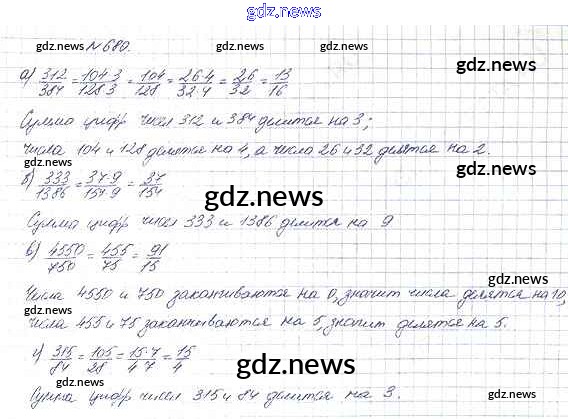 gdz.news
№ 680.
gdz.news gdz.news gdz.news
а) 312/384 = 104·3/128·3 = 104/128 = 26·4/32·4 = 26/32 = 13/16
Сумма цифр чисел 312 и 384 делится на 3;
Числа 104 и 128 делятся на 4, а числа 26 и 32 делятся на 2.
gdz.news gdz.news
б) 333/1386 = 37·9/154·9 = 37/154
gdz.news
Сумма цифр чисел 333 и 1386 делится на 9
в) 4550/750 = 455/75 = 91/15
gdz.news
Числа 4550 и 750 заканчиваются на 0, значит числа делятся на 10,
gdz.news gdz.news
числа 455 и 75 заканчиваются на 5, значит делятся на 5.
г) 315/84 = 105/28 = 15·7/4·7 = 15/4
gdz.news
gdz.news
Сумма цифр чисел 315 и 84 делится на 3.
gdz.news